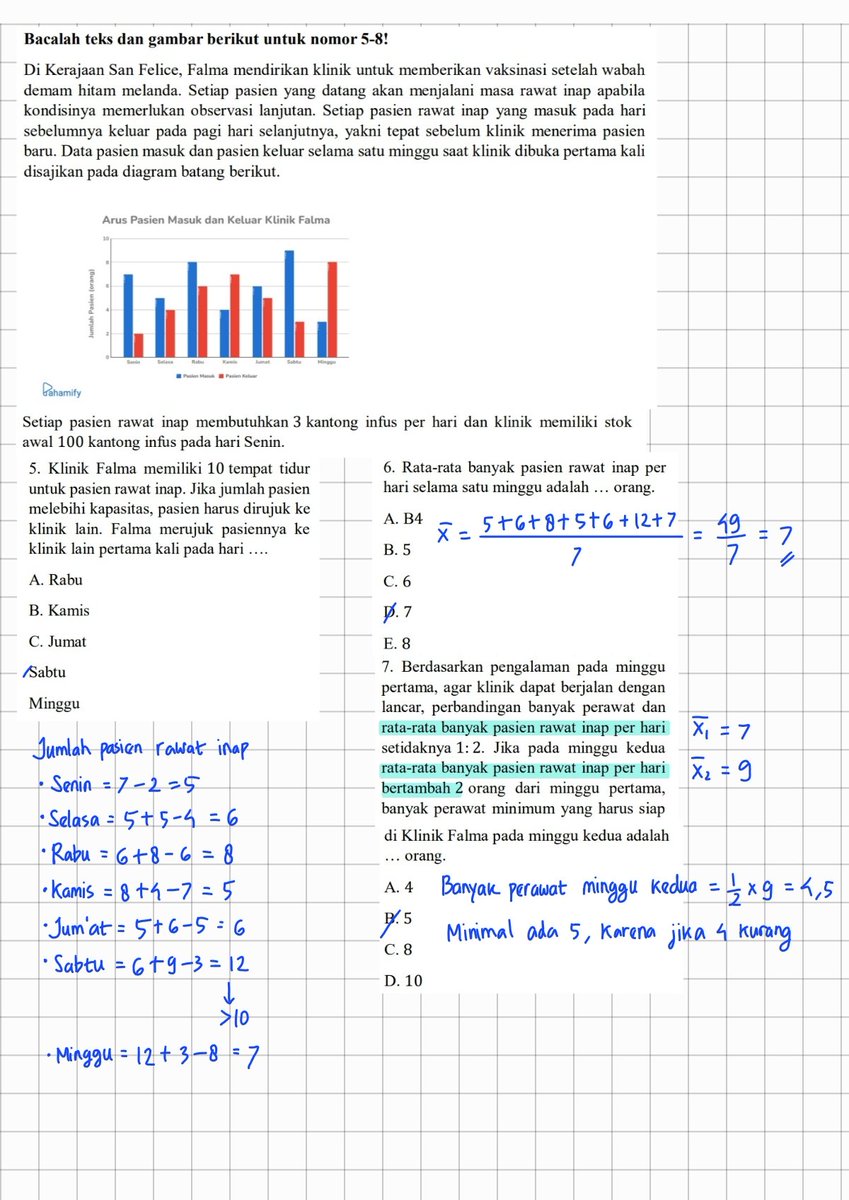 Bacalah teks dan gambar berikut untuk nomor 5-8!
Di Kerajaan San Felice, Falma mendirikan klinik untuk memberikan vaksinasi setelah wabah
demam hitam melanda. Setiap pasien yang datang akan menjalani masa rawat inap apabila
kondisinya memerlukan observasi lanjutan. Setiap pasien rawat inap yang masuk pada hari
sebelumnya keluar pada pagi hari selanjutnya, yakni tepat sebelum klinik menerima pasien
baru. Data pasien masuk dan pasien keluar selama satu minggu saat klinik dibuka pertama kali
disajikan pada diagram batang berikut.
Arus Pasien Masuk dan Keluar Klinik Falma
Jumlah Pasien (orang)
10
8
6
4
2
0
Senin Selasa Rabu Kamis Jumat Sabtu Minggu
Pasien Masuk Pasien Keluar
Pahamify
Setiap pasien rawat inap membutuhkan 3 kantong infus per hari dan klinik memiliki stok
awal 100 kantong infus pada hari Senin.
5. Klinik Falma memiliki 10 tempat tidur
untuk pasien rawat inap. Jika jumlah pasien
melebihi kapasitas, pasien harus dirujuk ke
klinik lain. Falma merujuk pasiennya ke
klinik lain pertama kali pada hari ….
A. Rabu
B. Kamis
C. Jumat
Sabtu
Minggu
Jumlah pasien rawat inap
• Senin = 7 - 2 = 5
• Selasa = 5 + 5 - 4 = 6
• Rabu = 6 + 8 - 6 = 8
• Kamis = 8 + 4 - 7 = 5
• Jum'at = 5 + 6 - 5 = 6
• Sabtu = 6 + 9 - 3 = 12
↓
>10
• Minggu = 12 + 3 - 8 = 7
6. Rata-rata banyak pasien rawat inap per
hari selama satu minggu adalah … orang.
A. B4
B. 5
C. 6
D. 7
E. 8
x̄ = 5+6+8+5+6+12+7 / 7 = 49 / 7 = 7
7. Berdasarkan pengalaman pada minggu
pertama, agar klinik dapat berjalan dengan
lancar, perbandingan banyak perawat dan
rata-rata banyak pasien rawat inap per hari
setidaknya 1: 2. Jika pada minggu kedua
rata-rata banyak pasien rawat inap per hari
bertambah 2 orang dari minggu pertama,
banyak perawat minimum yang harus siap
di Klinik Falma pada minggu kedua adalah
… orang.
x̄₁ = 7
x̄₂ = 9
A. 4
B. 5
C. 8
D. 10
Banyak perawat minggu kedua = 1/2 x 9 = 4,5
Minimal ada 5, karena jika 4 kurang